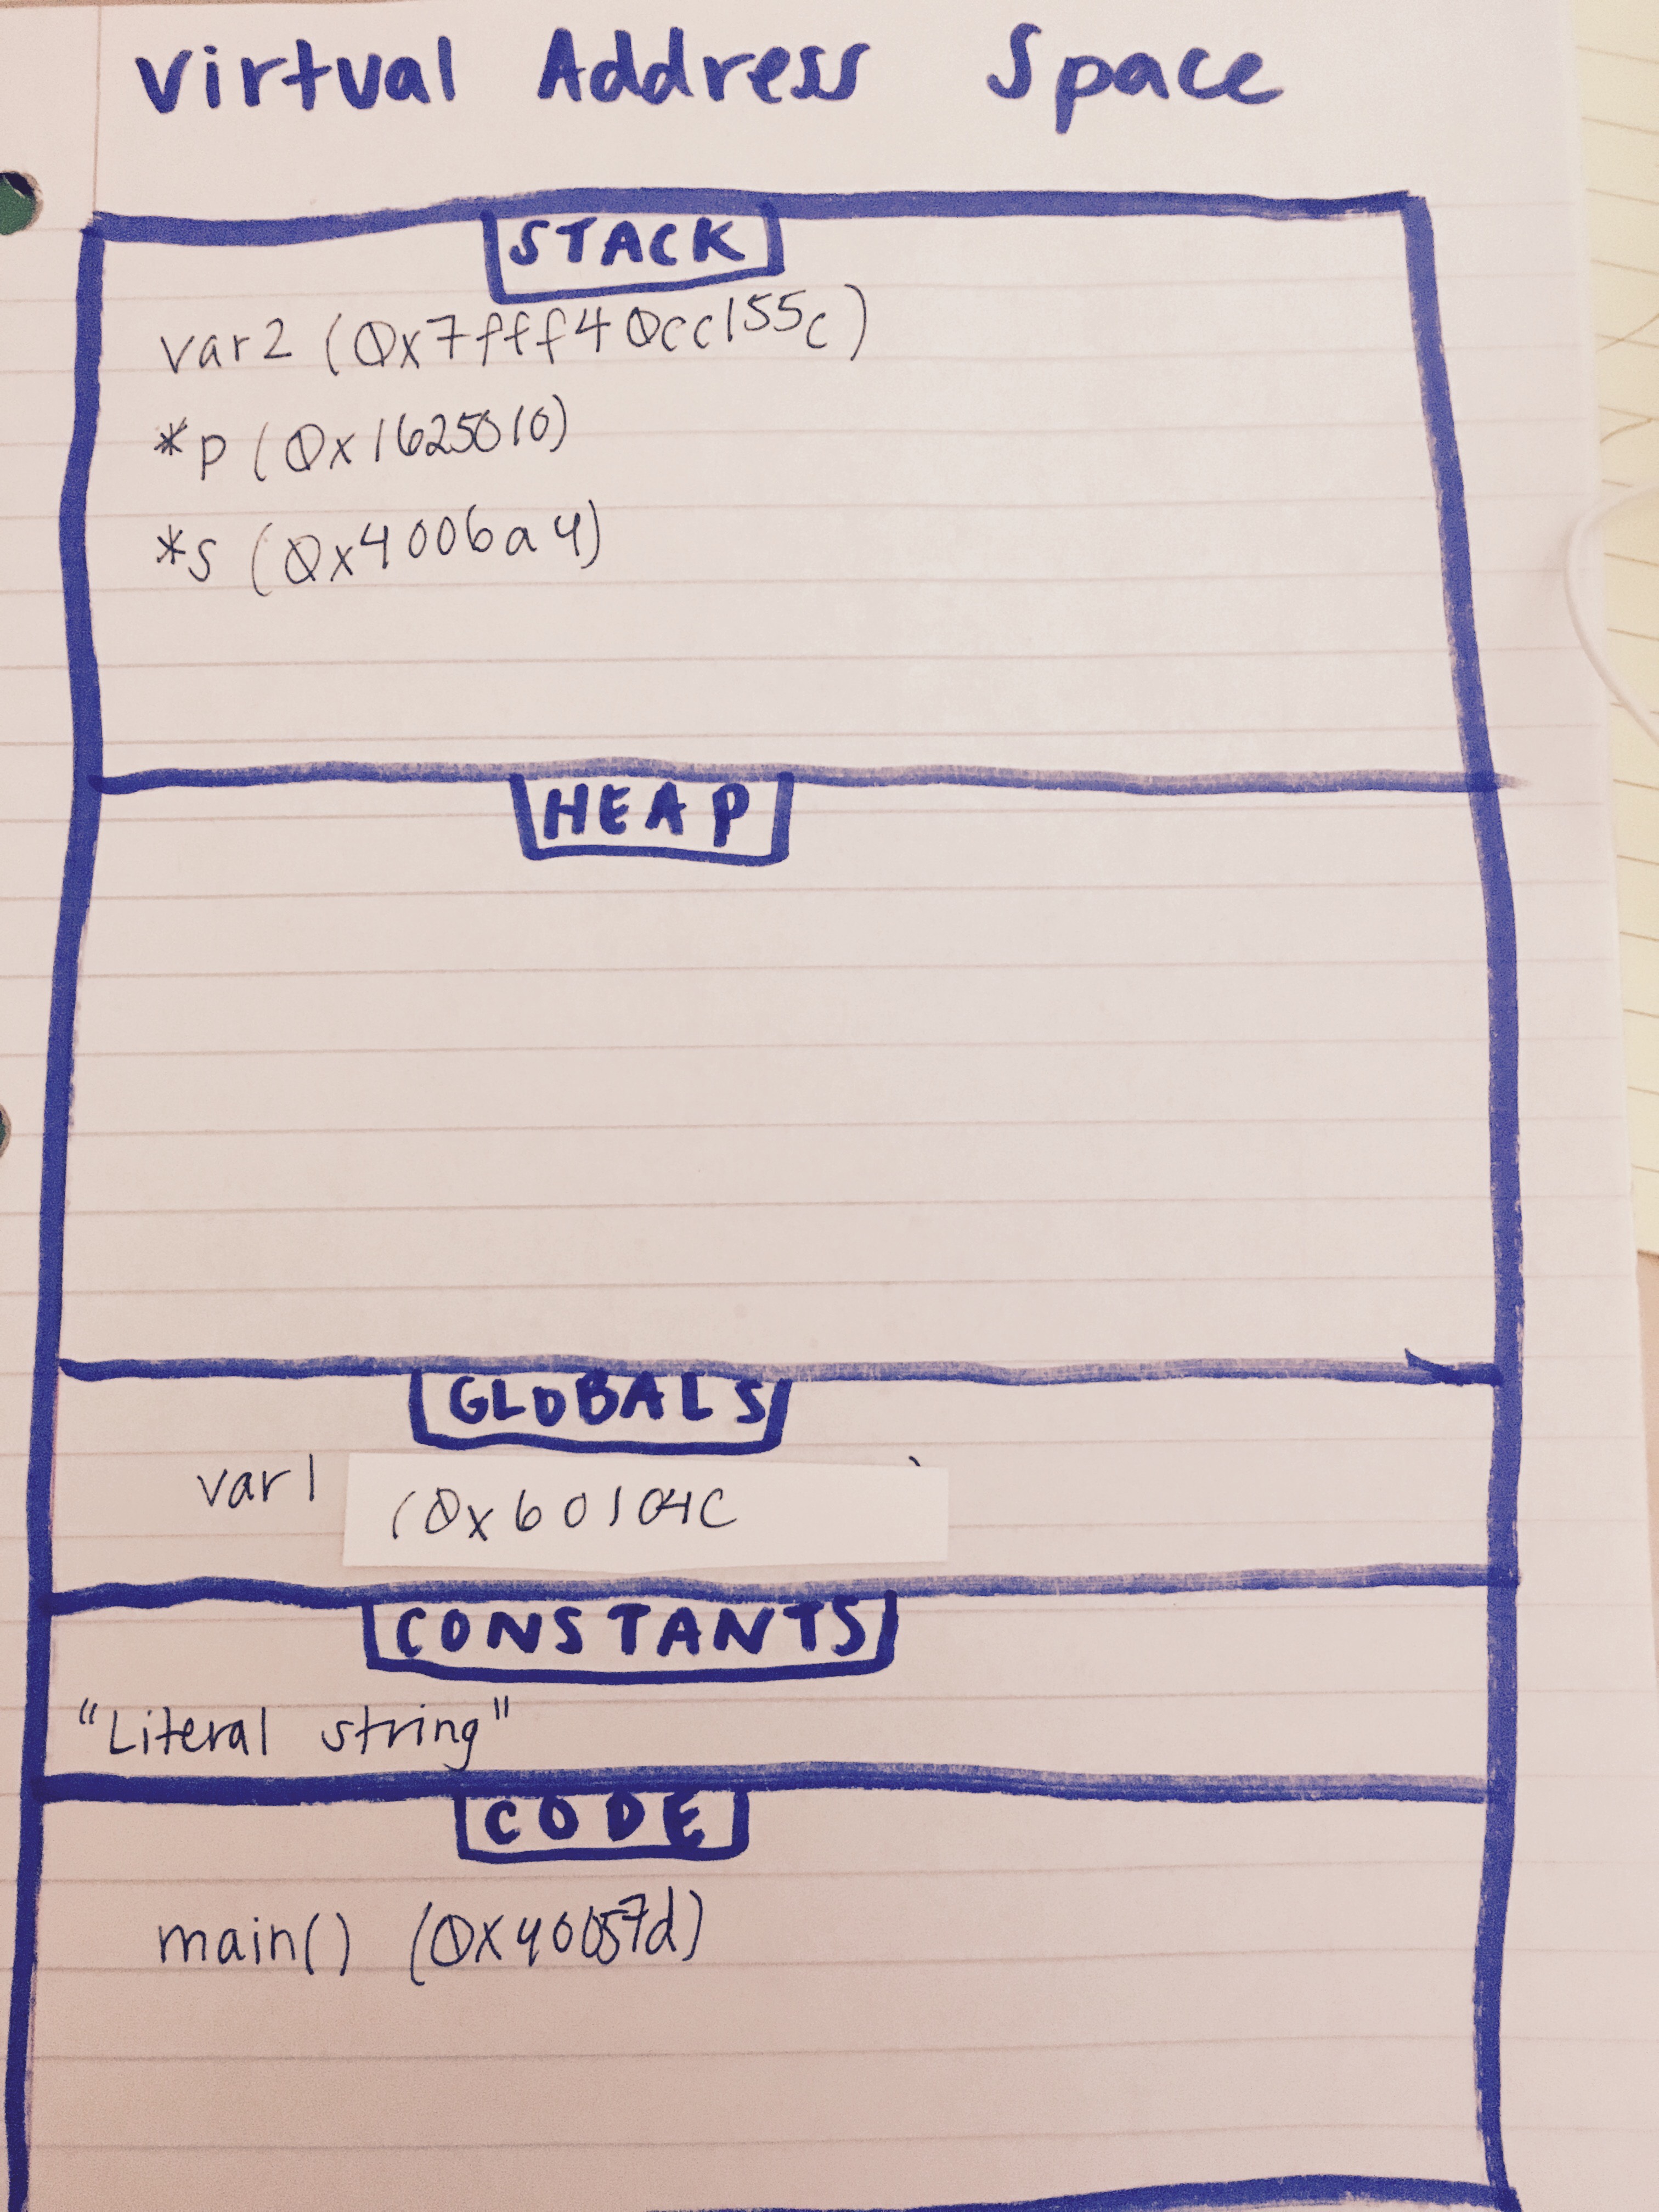 Virtual Address Space
STACK
var2 (0x7fff40cc155c)
*p (0x1625010)
*s (0x4006a4)
HEAP
GLOBALS
var1 (0x60104C
CONSTANTS
"Literal string"
CODE
main() (0x40057d)